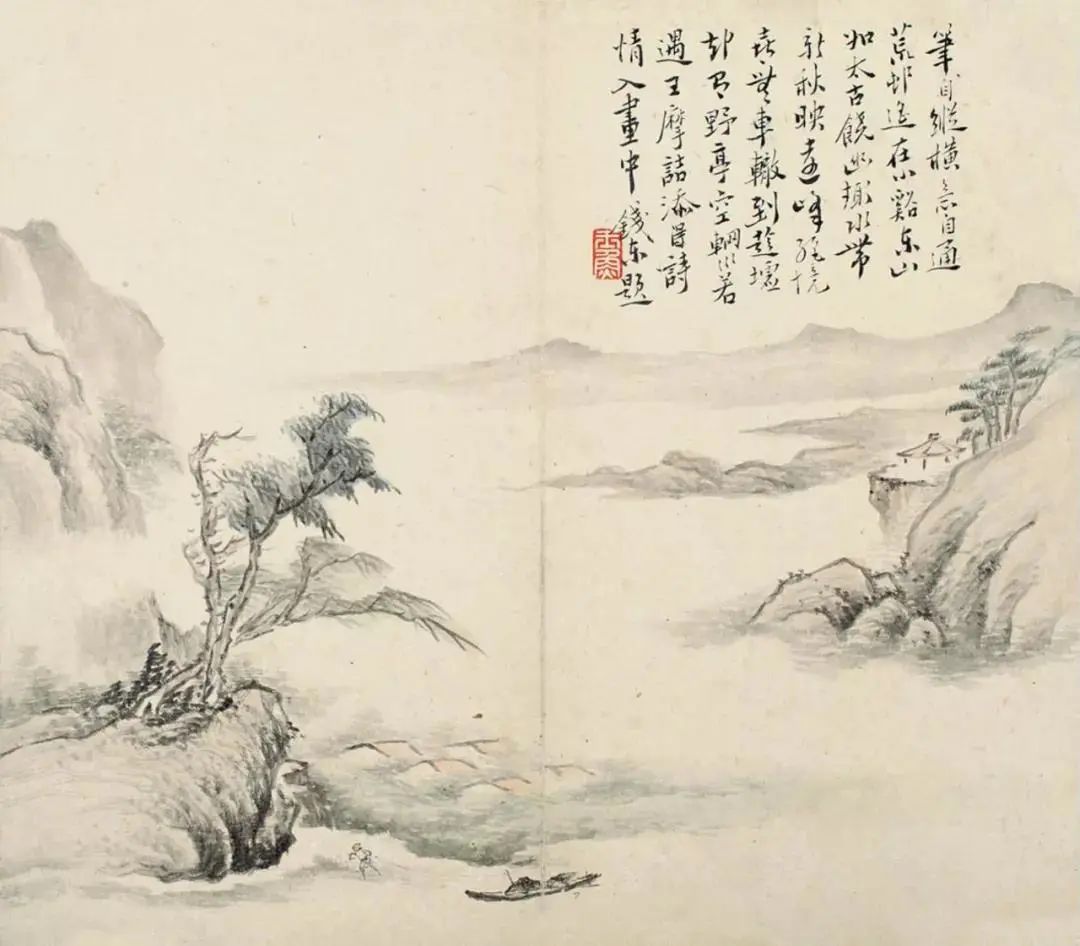 筆自縱橫意自通
荒邨遙在小谿東山
如太古饒幽趣水帶
新秋映遠峰絕境
喜無車轍到
却有野亭空輞川若
遇王摩詰添得詩
情入畫中 錢東題